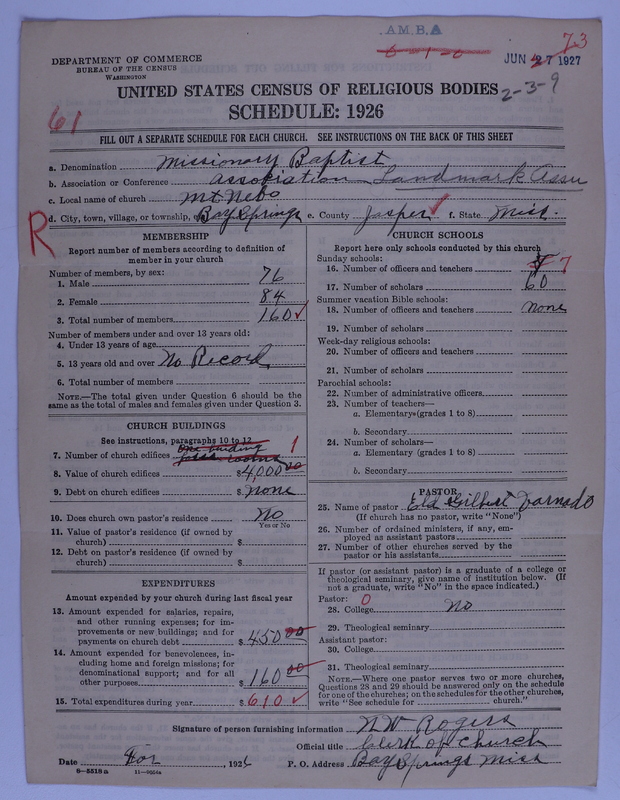 A.M.B.A
6-1-0
73
JUN 27 1927
2-3-9
DEPARTMENT OF COMMERCE
BUREAU OF THE CENSUS
WASHINGTON
UNITED STATES CENSUS OF RELIGIOUS BODIES
SCHEDULE: 1926
61
FILL OUT A SEPARATE SCHEDULE FOR EACH CHURCH. SEE INSTRUCTIONS ON THE BACK OF THIS SHEET
a. Denomination Missionary Baptist
b. Association or Conference Association Landmark Assn
c. Local name of church Mt Nebo
d. City, town, village, or township, Bay Springs e. County Jasper f. State Miss.
R
MEMBERSHIP
Report number of members according to definition of
member in your church
Number of members, by sex:
1. Male 76
2. Female 84
3. Total number of members 160
Number of members under and over 13 years old:
4. Under 13 years of age
5. 13 years old and over No Record
6. Total number of members
NOTE.—The total given under Question 6 should be the
same as the total of males and females given under Question 3.
CHURCH BUILDINGS
See instructions, paragraphs 10 to 12
one building
7. Number of church edifices rooms 1
8. Value of church edifices $4,000 00
9. Debt on church edifices $ None
10. Does church own pastor's residence No
Yes or No
11. Value of pastor's residence (if owned by
church) $
12. Debt on pastor's residence (if owned by
church) $
EXPENDITURES
Amount expended by your church during last fiscal year
13. Amount expended for salaries, repairs,
and other running expenses; for im-
provements or new buildings; and for
payments on church debt $ 450 00
14. Amount expended for benevolences, in-
cluding home and foreign missions; for
denominational support; and for all
other purposes $ 160 00
15. Total expenditures during year $ 610
CHURCH SCHOOLS
Report here only schools conducted by this church
Sunday schools:
16. Number of officers and teachers 7
17. Number of scholars 60
Summer vacation Bible schools:
18. Number of officers and teachers none
19. Number of scholars
Week-day religious schools:
20. Number of officers and teachers
21. Number of scholars
Parochial schools:
22. Number of administrative officers
23. Number of teachers—
a. Elementary (grades 1 to 8)
b. Secondary
24. Number of scholars—
a. Elementary (grades 1 to 8)
b. Secondary
PASTOR
25. Name of pastor Eld Gilbert Varnado
(If church has no pastor, write "None")
26. Number of ordained ministers, if any, em-
ployed as assistant pastors
27. Number of other churches served by the
pastor or his assistants
If pastor (or assistant pastor) is a graduate of a college or
theological seminary, give name of institution below. (If
not a graduate, write "No" in the space indicated.)
Pastor: 0
28. College No
29. Theological seminary
Assistant pastor:
30. College
31. Theological seminary
NOTE.—Where one pastor serves two or more churches,
Questions 28 and 29 should be answered only on the schedule
for one of the churches; on the schedules for the other churches,
write "See schedule for church."
Signature of person furnishing information N W Rogers
Official title Clerk of Church
Date For , 1926 P. O. Address Bay Springs Miss
8-5518a 11-9034a